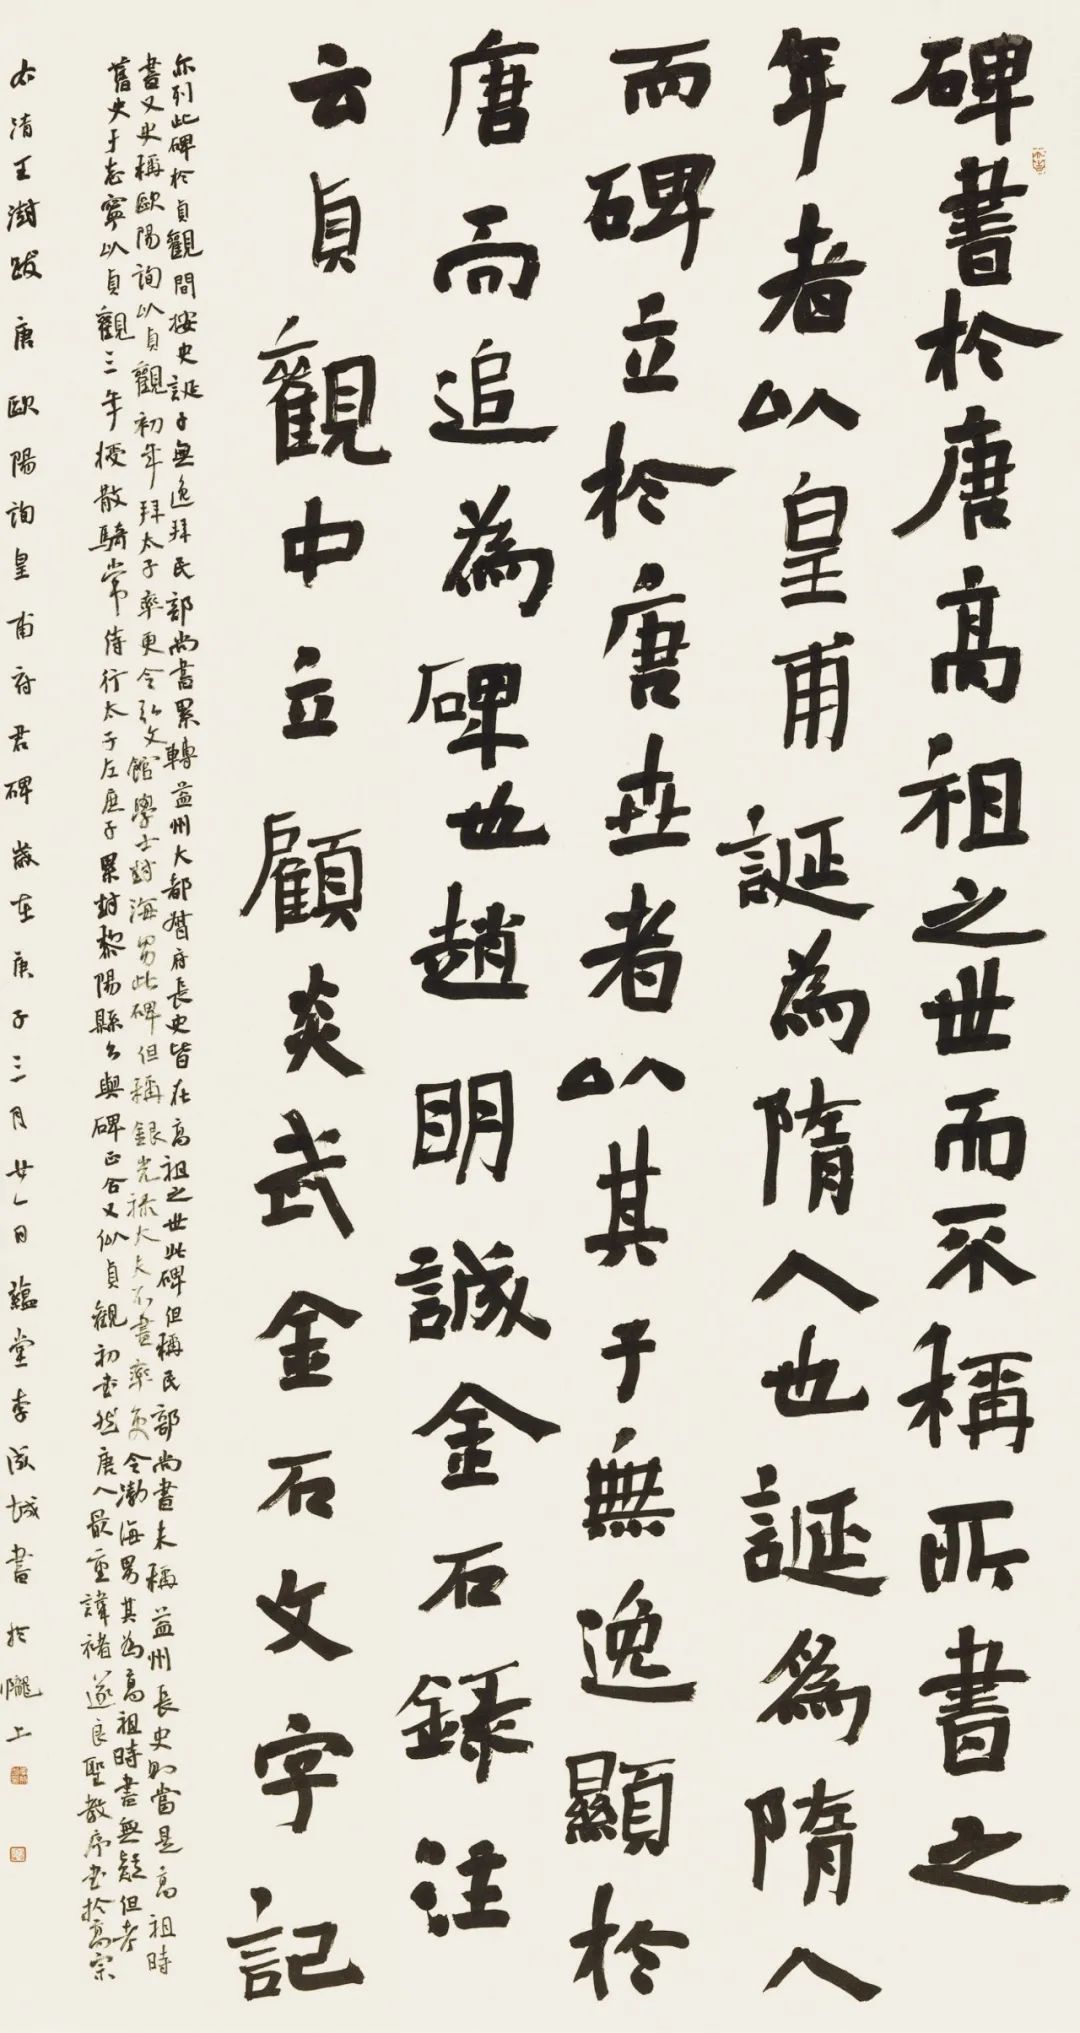 碑書於唐高祖之世而不稱所書之
年者以皇甫誕為隋人也誕為隋人
而碑立於唐世者以其子無逸顯於
唐而追為碑也趙明誠金石録注
云貞觀中立顧炎武金石文字記
亦列此碑於貞觀間按史誕子無逸拜民部尚書累轉益州大都督府長史皆在高祖之世此碑但稱民部尚書未稱益州長史則當是高祖時
書又史稱歐陽詢以貞觀初年拜太子率更令弘文館學士封渤海男此碑但稱銀光禄大夫不書率更令渤海男其為高祖時書無疑但考
舊史于志寧以貞觀三年授散騎常侍行太子左庶子累封黎陽縣公與碑正合又似貞觀初書然唐人最重諱褚遂良聖教序書於高宗
右清王澍跋唐歐陽詢皇甫府君碑歲在庚子三月廿日蘊堂李成城書於隴上